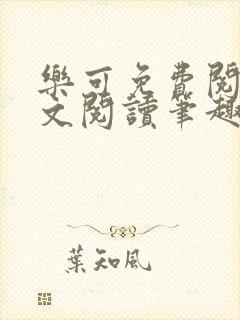 樂可免費閱
文閱讀筆趣
葉知風